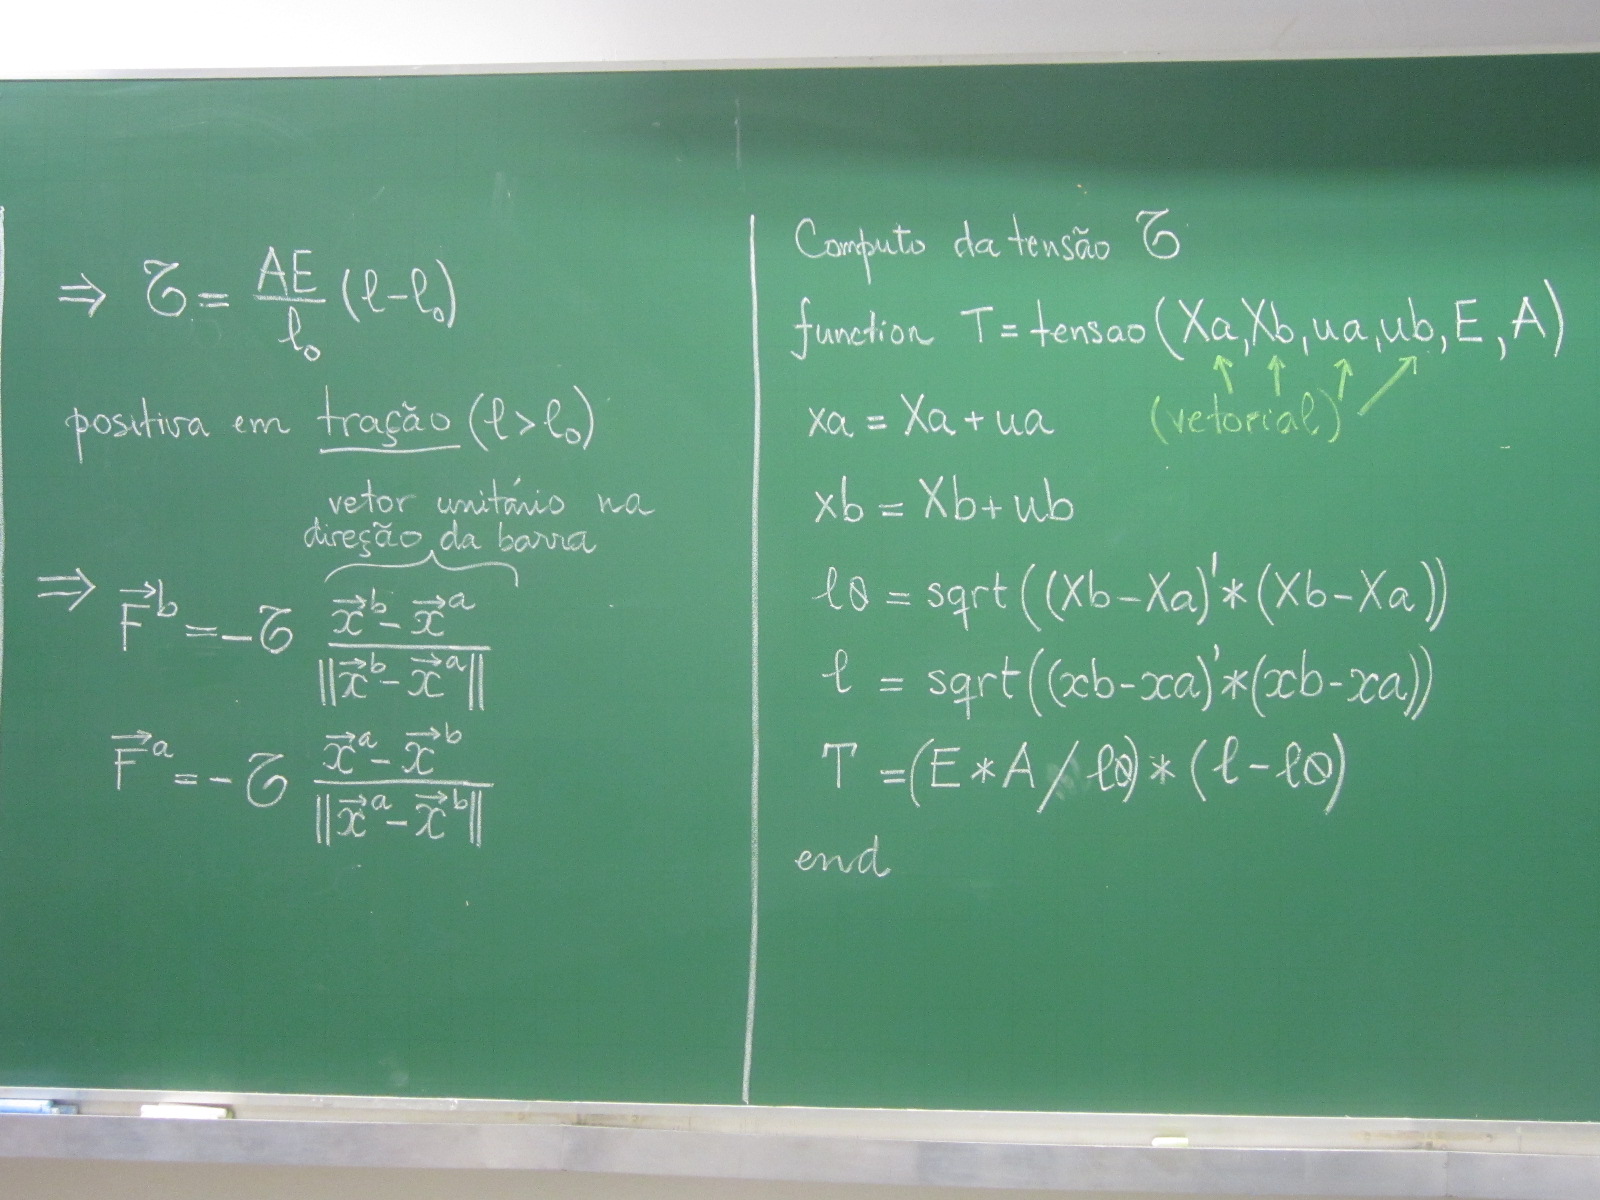 ⇒ 𝒯 = AE/l₀ (l-l₀)
positiva em tração (l>l₀)
vetor unitário na
direção da barra
⇒ F⃗ᵇ = -𝒯 (x⃗ᵇ - x⃗ᵃ)/||x⃗ᵇ - x⃗ᵃ||
F⃗ᵃ = -𝒯 (x⃗ᵃ - x⃗ᵇ)/||x⃗ᵃ - x⃗ᵇ||
Computo da tensão 𝒯
function T = tensao (Xa, Xb, ua, ub, E, A)
(vetorial)
xa = Xa + ua
xb = Xb + ub
l0 = sqrt((Xb-Xa)'*(Xb-Xa))
l = sqrt((xb-xa)'*(xb-xa))
T = (E*A/l0)*(l-l0)
end